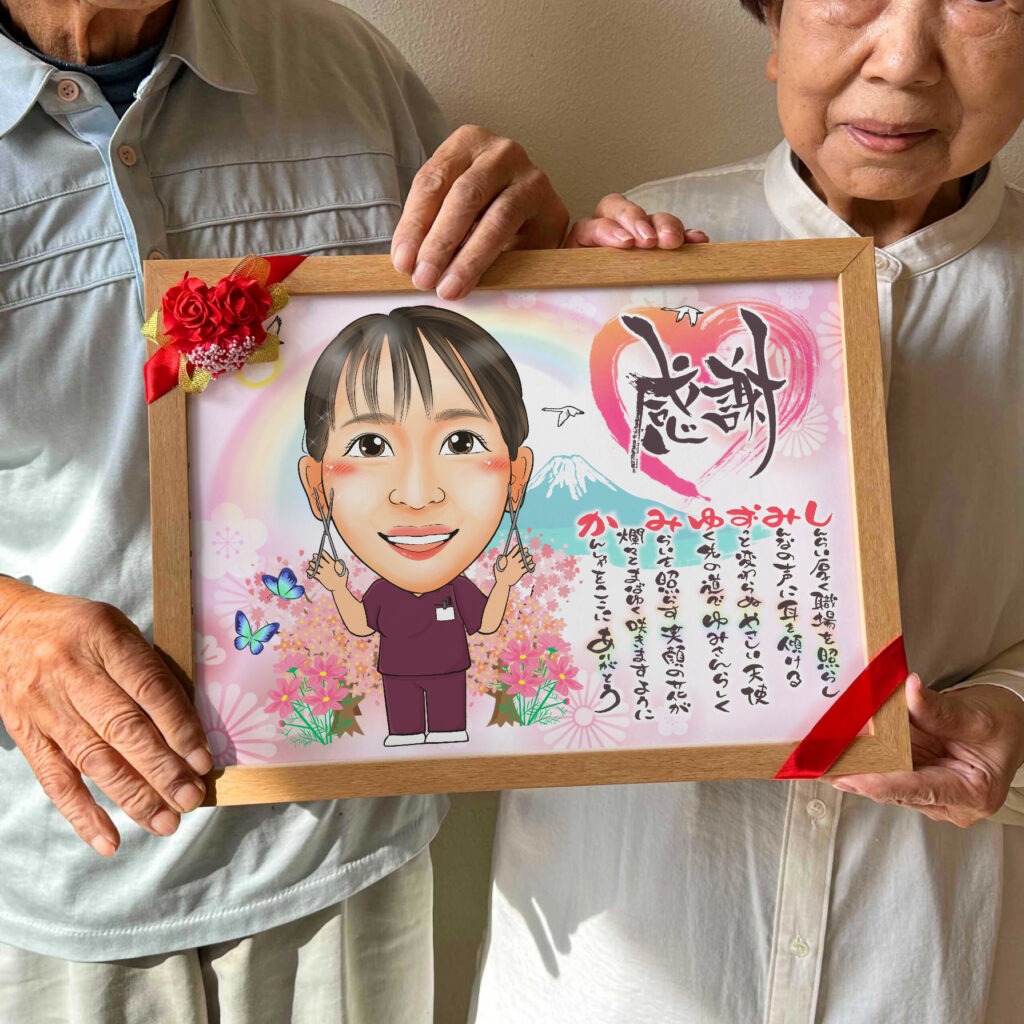 感謝
しんらい厚く職場を照らし
みんなの声に耳を傾ける
ずっと変わらぬやさしい天使
ゆく先の道でゆみさんらしく
みらいを照らす笑顔の花が
爛々とまばゆく咲きますように
かんしゃをここに ありがとう